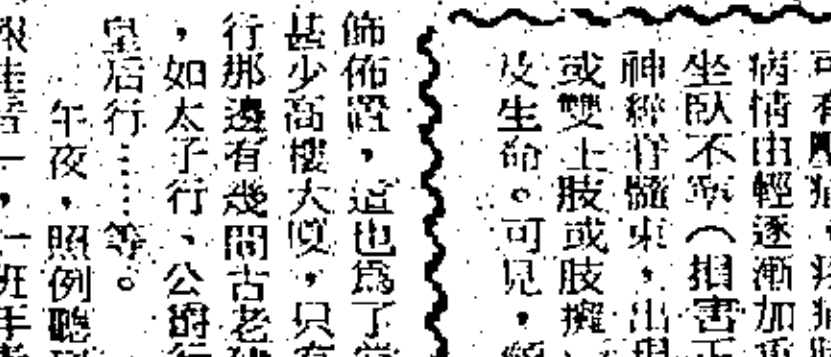 病情由輕逐漸加重
坐臥不寧（損害
神經脊髓束，出現
或雙上肢或肢癱
及生命。可見，
飾佈置，這也為了
甚少高樓大廈，只有
行那邊有幾間古老
，如太子行、公爵行
皇后行……等。
午夜，照例聽到
一，一班年